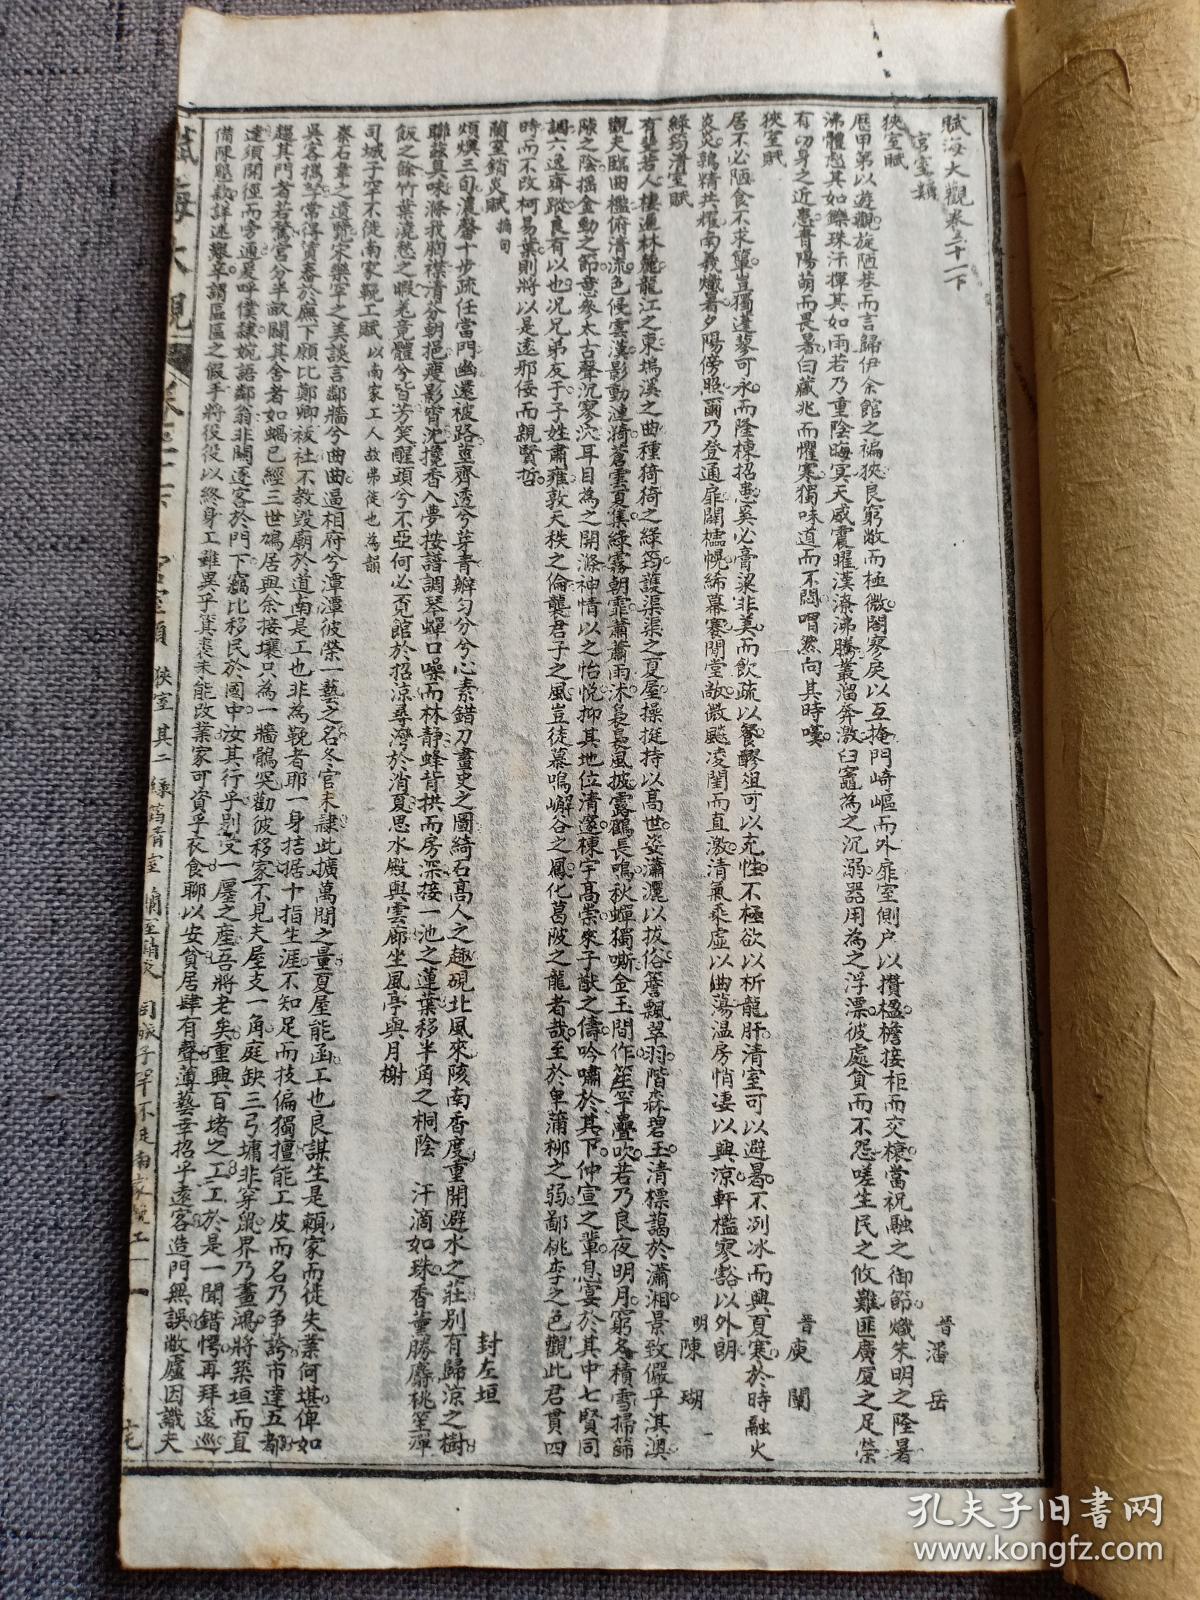 賦海大觀卷三十二下
宮室類
狹室賦
晉潘岳
歷甲第以遊觀旋陋巷而言歸伊余館之褊狹良窮敝而極微閣寥戾以互掩門崎嶇而外扉室側戶以攢楹檐接柜而交榱當祝融之御節熾朱明之隆暑
沸體惄其如鑠珠汗揮其如雨若乃重陰晦冥天威震曜漢潦沸騰叢溜奔激臼竈為之沉弱器用為之浮漂彼處貧而不怨嗟生民之攸難匪廣廈之足榮
有切身之近患青陽萌而畏暑白藏兆而懼寒獨味道而不悶喟然向其時嘆
狹室賦
晉庾闡
居不必陋食不求簞豈獨蓬蓼可永而隆棟招患奚必膏粱非美而飲疏以餐醪俎可以充性不極欲以析龍肝清室可以避暑不冽冰而興夏寒於時融火
炎炎鶉精共耀南羲熾暑夕陽傍照爾乃登通扉闢櫺幌絺幕褰閒堂敞微飈凌閨而直激清氣乘虛以曲蕩温房悄凄以興凉軒檻寥豁以外朗
綠筠清室賦
明陳瑚
有斐若人棲遁林麓龍江之東塢溪之曲種猗猗之綠筠護渠渠之夏屋操挺持以高世姿瀟灑以拔俗簷飄翠羽階森碧玉清標藹於瀟湘景致儼乎淇澳
觀夫臨曲檻俯清流色侵雲漢影動漣漪蒼雲夏集綠霧朝霏蕭蕭雨沐裊裊風披露鶴長鳴秋蟬獨嘶金玉間作笙竽疊吹若乃良夜明月窮冬積雪掃篩
隙之陰搖金動之節意參太古聲沉寥泬耳目為之開滌神情以之怡悅抑其地位清邃棟宇高崇來子猷之儔吟嘯於其下仲宣之輩息宴於其中七賢同
調六逸齊蹤良有以也况兄弟友于子姓肅雍敦天秩之倫襲君子之風豈徒慕鳴嶰谷之鳳化葛陂之龍者哉至於卑蒲柳之弱鄙桃李之色觀此君貫四
時而不改柯易葉則將以是遠邪佞而親賢哲
蘭室銷炎賦摘句
封左垣
煩燠三旬濃馨十步疏任當門幽還被路莖齊透兮芽青瓣勻分兮心素錯刀畫史之圖綺石高人之趣硯北風來陔南香度重開避水之莊别有歸凉之樹
聯茲真味滌我胸襟清分朝挹瘦影宵沈攪香入夢按譜調琴蟬口噪而林靜蜂背拱而房深接一池之蓮葉移半角之桐陰汗滴如珠香薰勝麝桃笙潭
飯之餘竹葉澆愁之暇羌竟體兮皆芳笑醒頭兮不亞何必覓館於招凉尋灣於消夏思水殿與雲廊坐風亭與月榭
司城子罕不徙南家鞔工賦以南家工人故弗徙也為韻
秦石韋之遺甕宋樂罕之美談言鄰牆兮曲曲逼相府兮潭潭彼榮一藝之名冬官未隸此擴萬間之量夏屋能函工也良謀生是賴家而徙失業何堪俾如
吳客攜孥常得賃舂於廡下願比鄭卿祓社不教毁廟於道南是工也非為鞔者耶一身拮据十指生涯不知足而技偏獨擅能工皮而名乃争誇市達五都
趨其門者若鶩宮分半畝闢其舍者如蝸已經三世鳩居與余接壤只為一牆鶻突勸彼移家不見夫屋支一角庭缺三弓墉非穿鼠界乃畫鴻將築垣而直
達須開徑而旁通爰呼僕隸婉語鄰翁非關逐客於門下竊比移民於國中汝其行乎别受一廛之座吾將老矣重興百堵之工工於是一聞錯愕再拜逡巡
備陳壓裁詳述艱辛謂區區之假手將役役以終身工雖異乎箕裘未能改業家可資乎衣食聊以安貧居肆有聲薄藝幸招乎遠客造門無誤敝廬因識夫
賦海大觀 卷三十二下 宮室類 狹室 其二 綠筠清室 蘭室銷炎 司城子罕不徙南家鞔工 一
孔夫子旧書网
www.kongfz.com